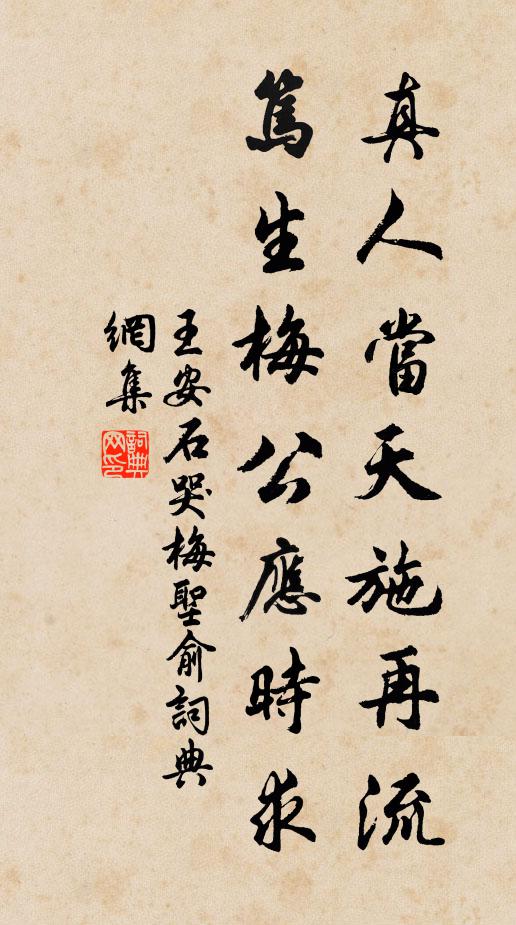 真人當天施再流
篤生梅公應時求
王安石哭梅聖俞詞典
網集
詞典網印